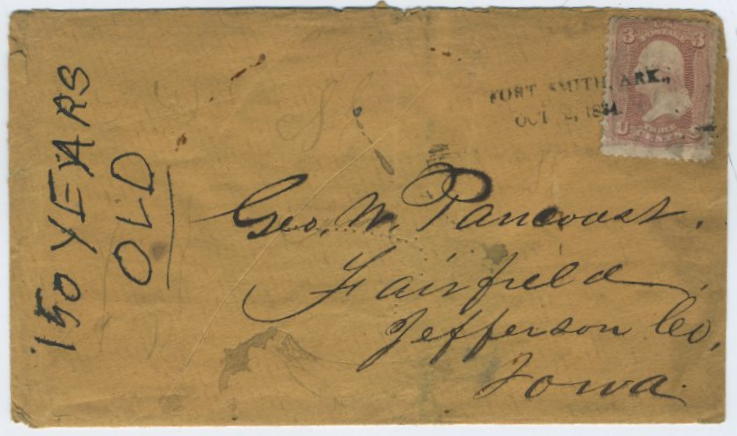 '150 YEARS
OLD
3 POSTAGE 3
FORT SMITH, ARK.,
OCT 1864.
U THREE S
CENTS
Geo. W. Pancoast.
Fairfield,
Jefferson Co,
Iowa.